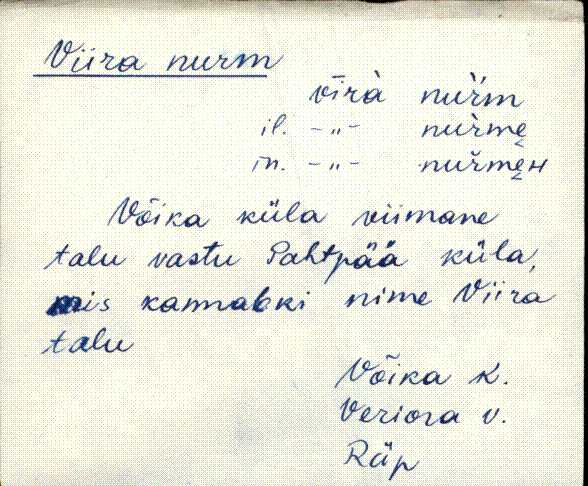 Viira nurm
vīrà nur̆m
il. -„- nur̆mę
in. -„- nur̆męн
Võika küla viimane
talu vastu Sahtpää küla,
mis kannabki nime Viira
talu
Võika k.
Veriora v.
Räp